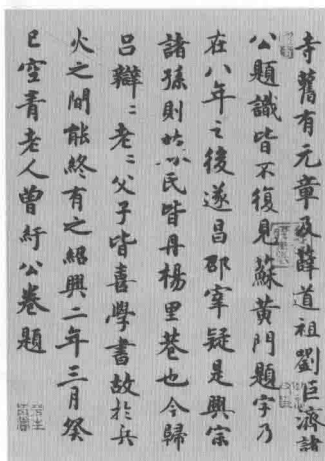 寺舊有元章及薛道祖劉巨濟諸
公題識皆不復見蘇黃門題字乃
在八年之後遂昌邵宰疑是興宗
諸孫則姑民皆丹楊里巷也今歸
呂辯=老=父子皆喜學書故於兵
火之間能終有之紹興二年三月癸
巳空青老人曾紆公卷題